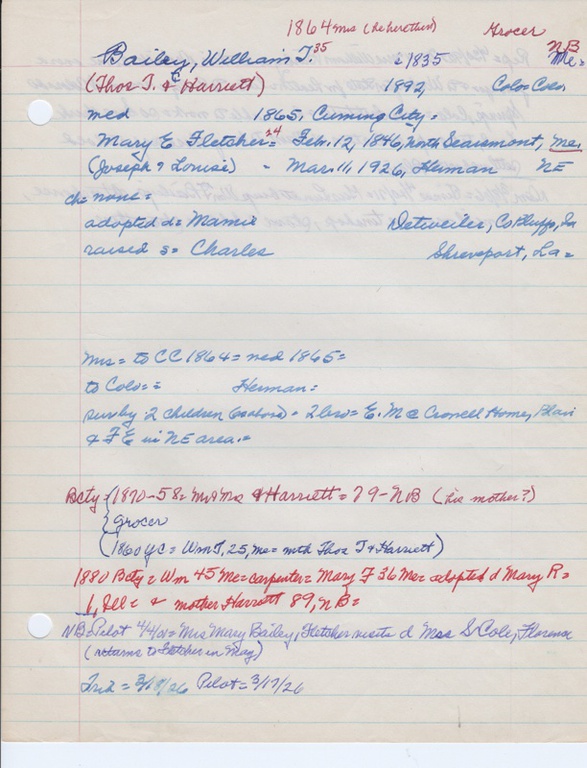 1864 mrs (he herethen) Grocer
N B
Bailey, William T. 35 c1835 Me=
(Thos T. & Harriett) 1892, Colo= Colo.
med 1865, Cuming City=
Mary E Fletcher= 24 Feb. 12, 1846, North Searsmont, Me,
(Joseph & Louise) - Mar. 11, 1926, Herman NE
ch= none=
adopted d= Mamie Detweiler, Co Bluffs, Ia
raised s= Charles Shreveport, La=
mrs= to CC 1864= med 1865=
to Colo== Herman=
surv by 2 children (above)= 2 bro= E. M @ Crowell Home, Blair
& F E in NE area.=
Bcty= 1870-58= Me Mrs & Harriett= 79-NB (his mother?)
grocer
(1860 yc= Wm T, 25, Me= mth Thos T & Harriett)
1880 Bcty= Wm 45 Me= carpenter= Mary F 36 Me= adopted d Mary R=
1, Ill= & mother Harriett 89, NB=
NB= Pilot 4/4/01= Mrs Mary Bailey, Fletcher visits d Mrs S Cole, Florence
(returns to Fletcher in May)
Trib = 3/18/26 Pilot= 3/17/26